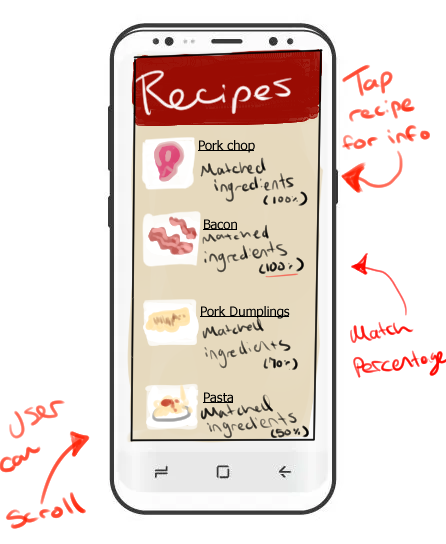 Recipes
Pork chop
Matched
ingredients
(100%)
Bacon
Matched
ingredients
(100%)
Pork Dumplings
Matched
ingredients
(70%)
Pasta
Matched
ingredients
(50%)
Tap
recipe
for info
Match
Percentage
User
can
scroll